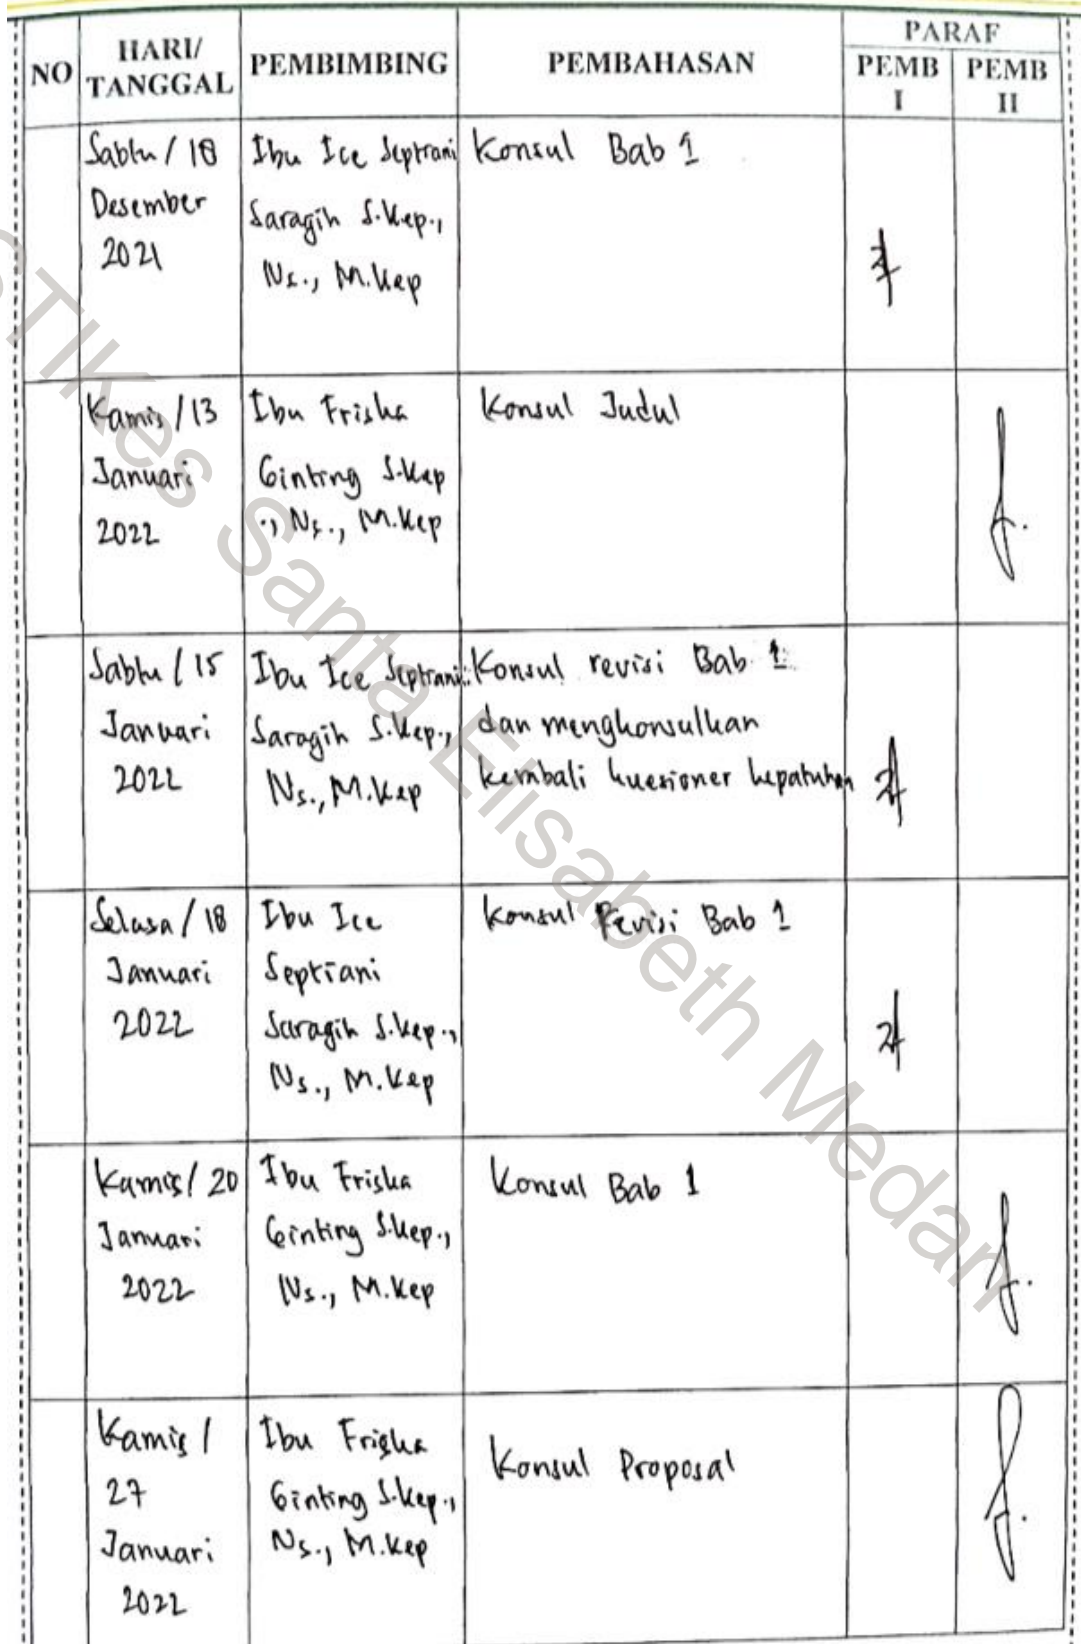 NO
HARI/
TANGGAL
PEMBIMBING
PEMBAHASAN
PARAF
PEMB
I
PEMB
II
Sabtu / 18
Desember
2021
Ibu Ice Septrani
Saragih S.Kep.,
Ns., M.Kep
Konsul Bab 1
Kamis / 13
Januari
2022
Ibu Friska
Ginting S.Kep
., Ns., M.Kep
Konsul Judul
Sabtu / 15
Januari
2022
Ibu Ice Septrani
Saragih S.Kep.,
Ns., M.Kep
Konsul revisi Bab 1
dan mengkonsulkan
kembali kuesioner kepatuhan
Selasa / 18
Januari
2022
Ibu Ice
Septiani
Saragih S.Kep.,
Ns., M.Kep
Konsul Revisi Bab 1
Kamis / 20
Januari
2022
Ibu Friska
Ginting S.Kep.,
Ns., M.Kep
Konsul Bab 1
Kamis /
27
Januari
2022
Ibu Friska
Ginting S.Kep.,
Ns., M.Kep
Konsul Proposal
STIKes Santa Elisabeth Medan